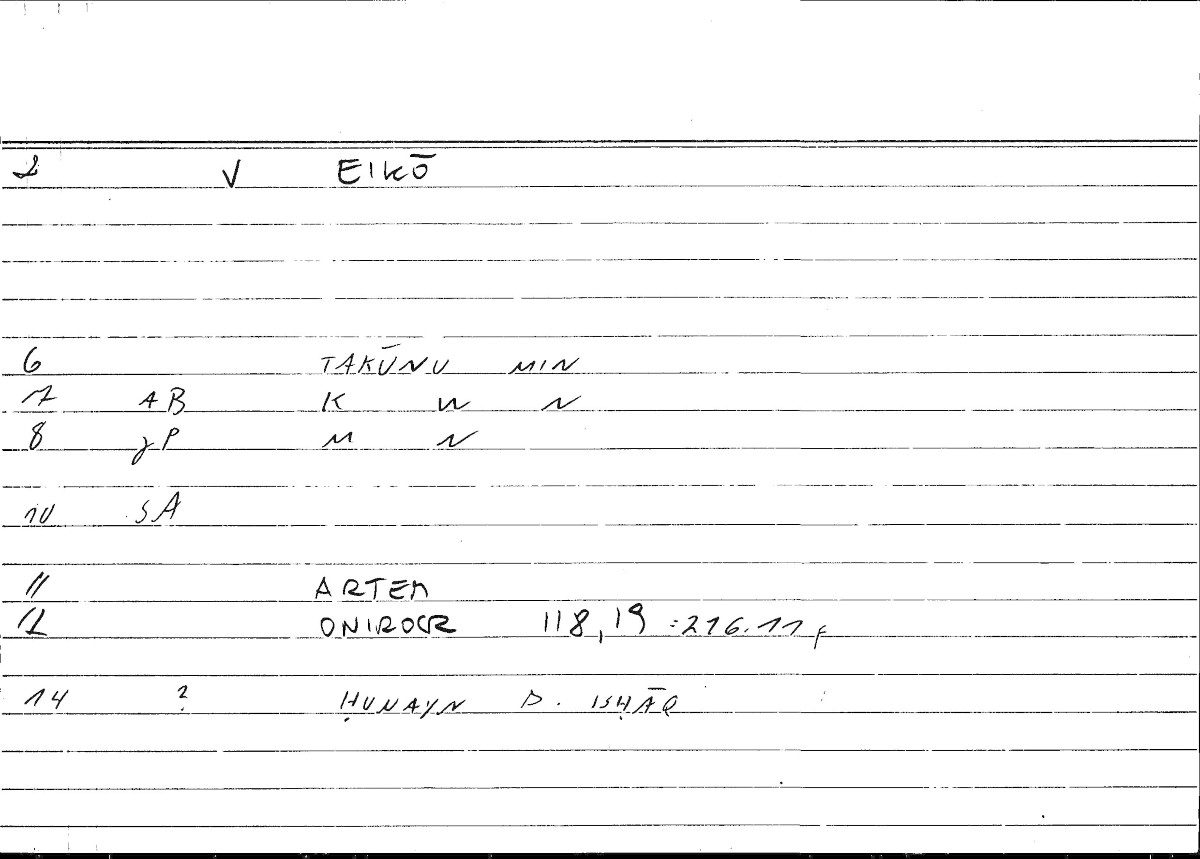 2 V EIKŌ
6 TAKŪNU MIN
7 AB K W N
8 γP M N
10 SA
11 ARTEM
12 ONIROCR 118,19 = 216.11 f
14 ? ḤUNAYN B. ISḤĀQ